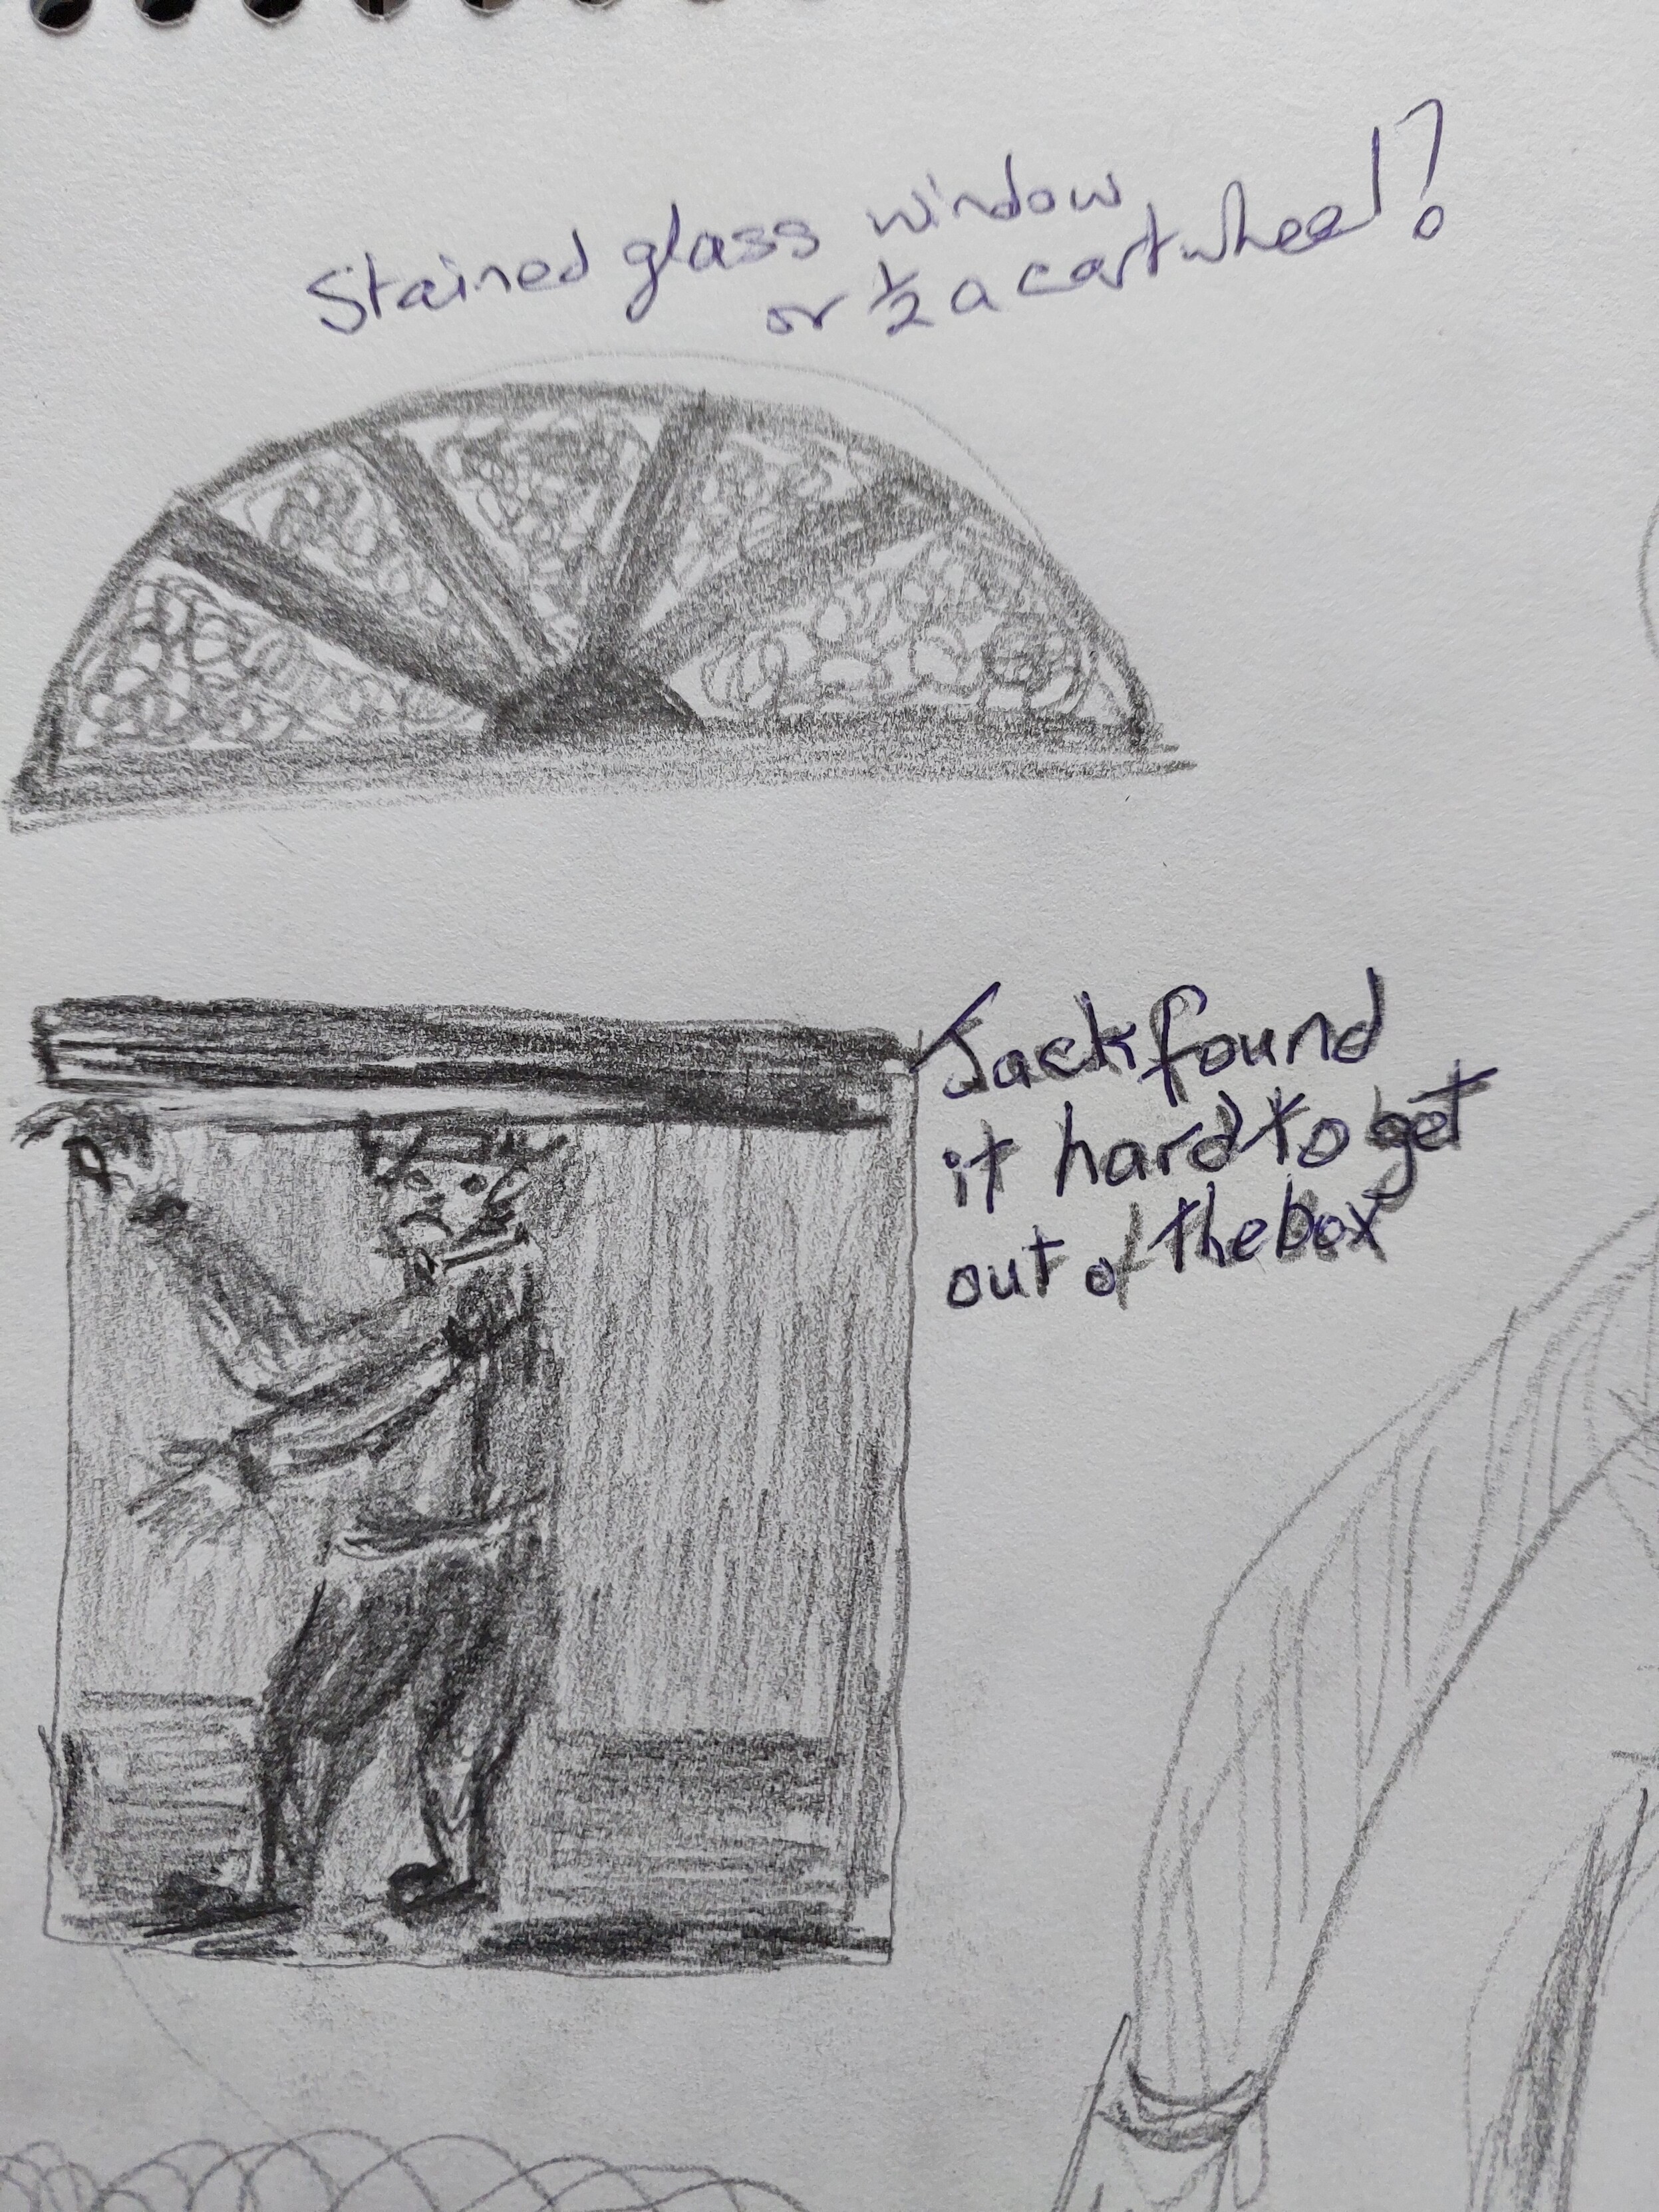 Stained glass window
or ½ a cartwheel?
Jack found
it hard to get
out of the box